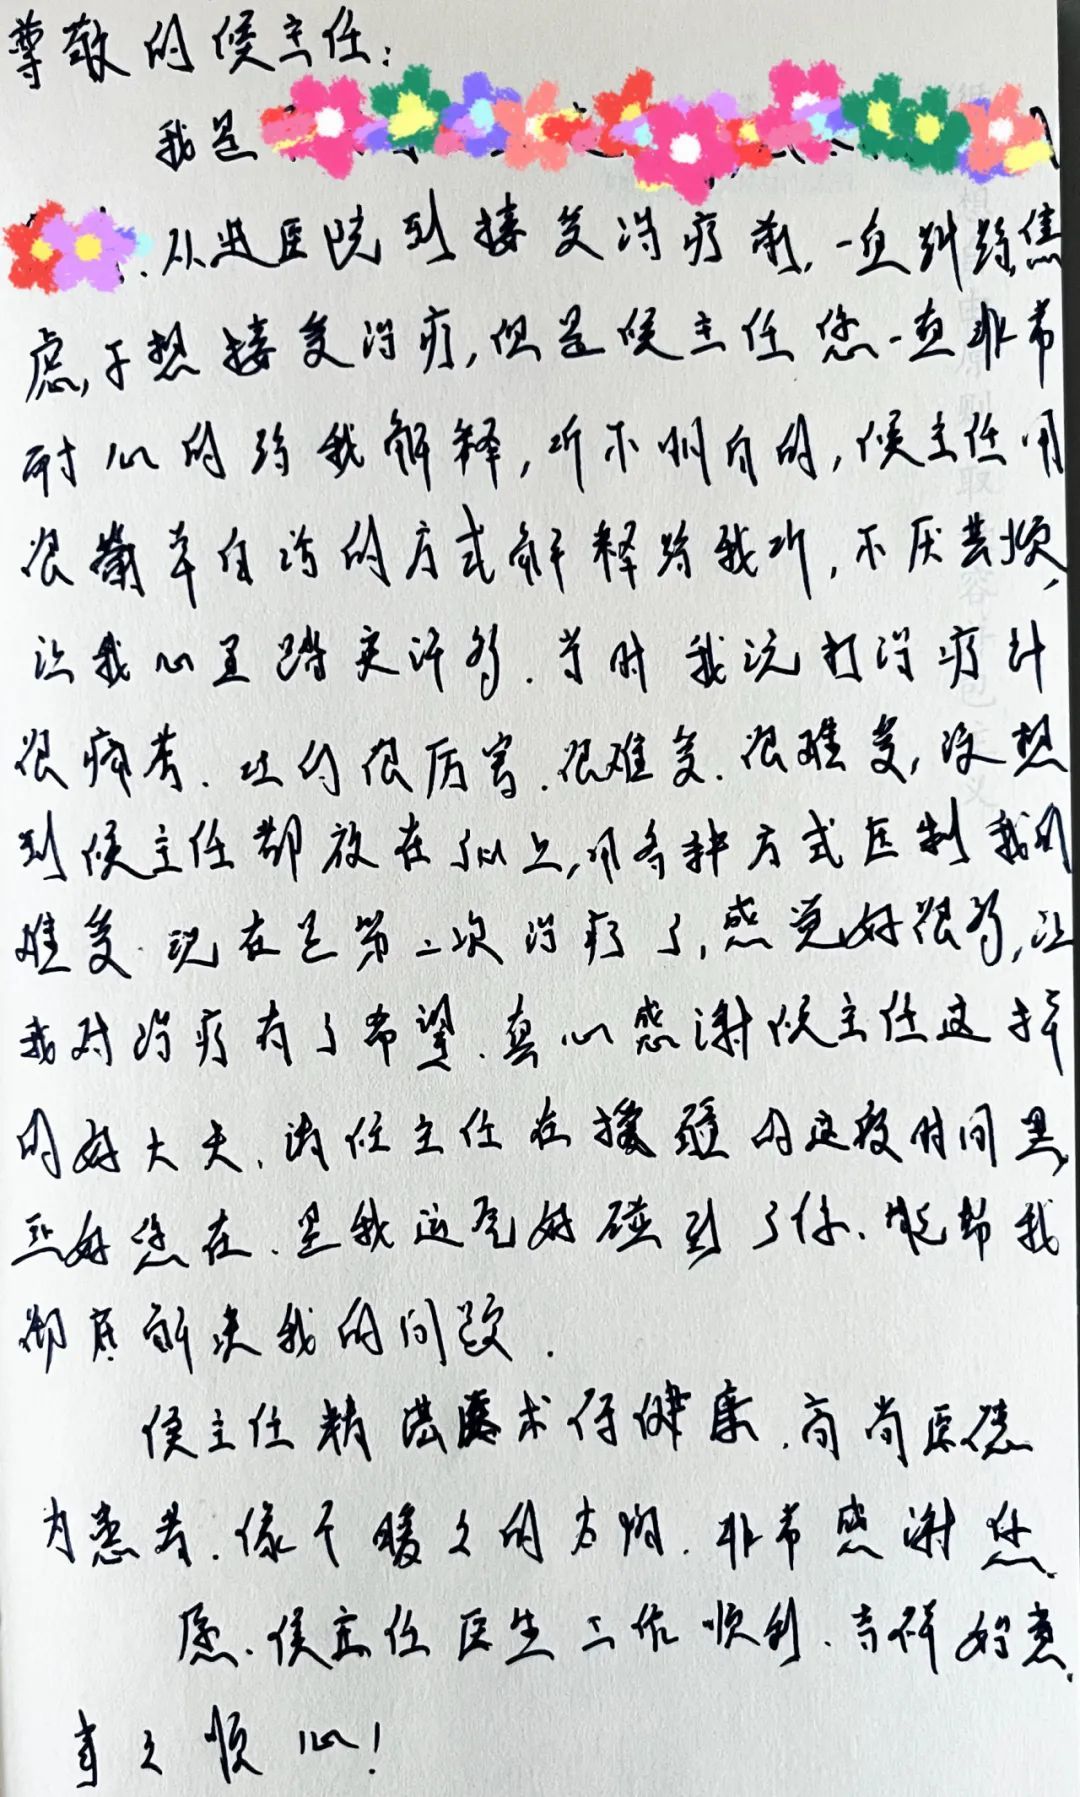 尊敬的候主任：
我是
.从进医院到接受治疗前,一直纠结焦
虑,不想接受治疗,但是候主任您一直非常
耐心的给我解释,听不明白的,候主任用
很简单自的方式解释给我听,不厌其烦,
让我心里踏实许多.当时我说打治疗针
很痛苦.吐的很厉害.很难受.很难受,没想
到候主任都放在了心上,用各种方式压制我的
难受.现在是第二次治疗了,感觉好很多,让
我对治疗有了希望.真心感谢候主任这样
的好大夫.主任在援疆的这段时间里,
正好您在.是我运气好碰到了你.能帮我
彻底解决我的问题.
侯主任精湛医术保健康.高尚医德
为患者.像个暖之的方.非常感谢您.
愿.侯主任医生工作顺利.吉祥如意.
事之顺心!